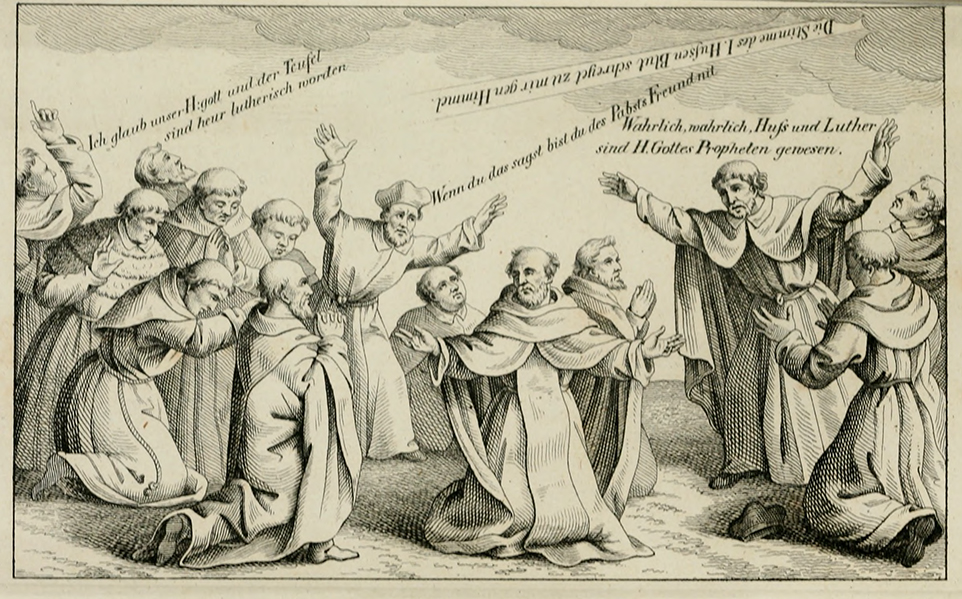 Ich glaub unser H: gott und der Teufel
sind heur lutherisch worden
Die Stimme des I. Hussen Blut schreyet zu mir gen Himmel.
Wenn du das sagst bist du des Pabsts Freund nit
Wahrlich, wahrlich, Huss und Luther
sind H. Gottes Propheten gewesen.